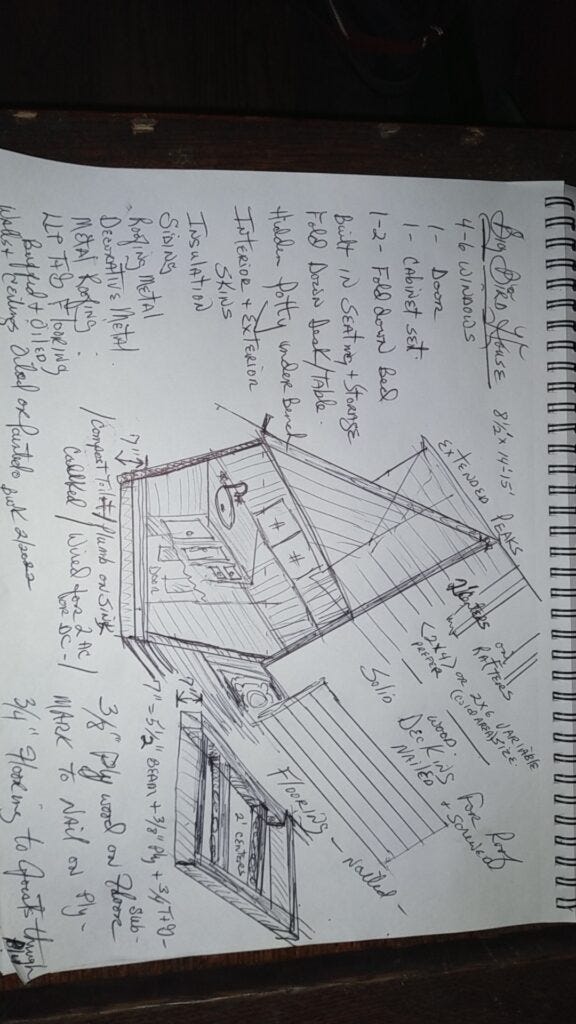 House 8½' x 14'-15'
4-6 WINDOWS
1- DOOR
1- CABINET SET.
1-2- FOLD DOWN BED
BUILT IN SEATING + STORAGE
FOLD DOWN DESK/TABLE.
Hidden Potty under Bench
INTERIOR + EXTERIOR
SKINS
INSULATION
SIDING
ROOFING METAL
DECORATIVE METAL
METAL ROOFING.
T+G FLOORING
Buffed + Oiled
Walls + Ceilings Oiled or Painted
EXTENDED PEAKS
ON
RAFTERS
(2x4) OR 2x6 VARIABLE
PREFER
SIZE
SOLID
WOOD
DECKING
NAILED
FOR ROOF
+ SCREWED
FLOORING - NAILED -
DOOR
7"
/Compost Toilet/Plumb on Sink
/ Wired for 2 AC
for DC -/
7"
2' CENTERS
7" = 5½" BEAM + 3/8" Ply + 3/4 T+G -
3/8" Ply wood on Sub-
floor
MARK TO NAIL ON Ply -
3/4" Flooring to Joists through